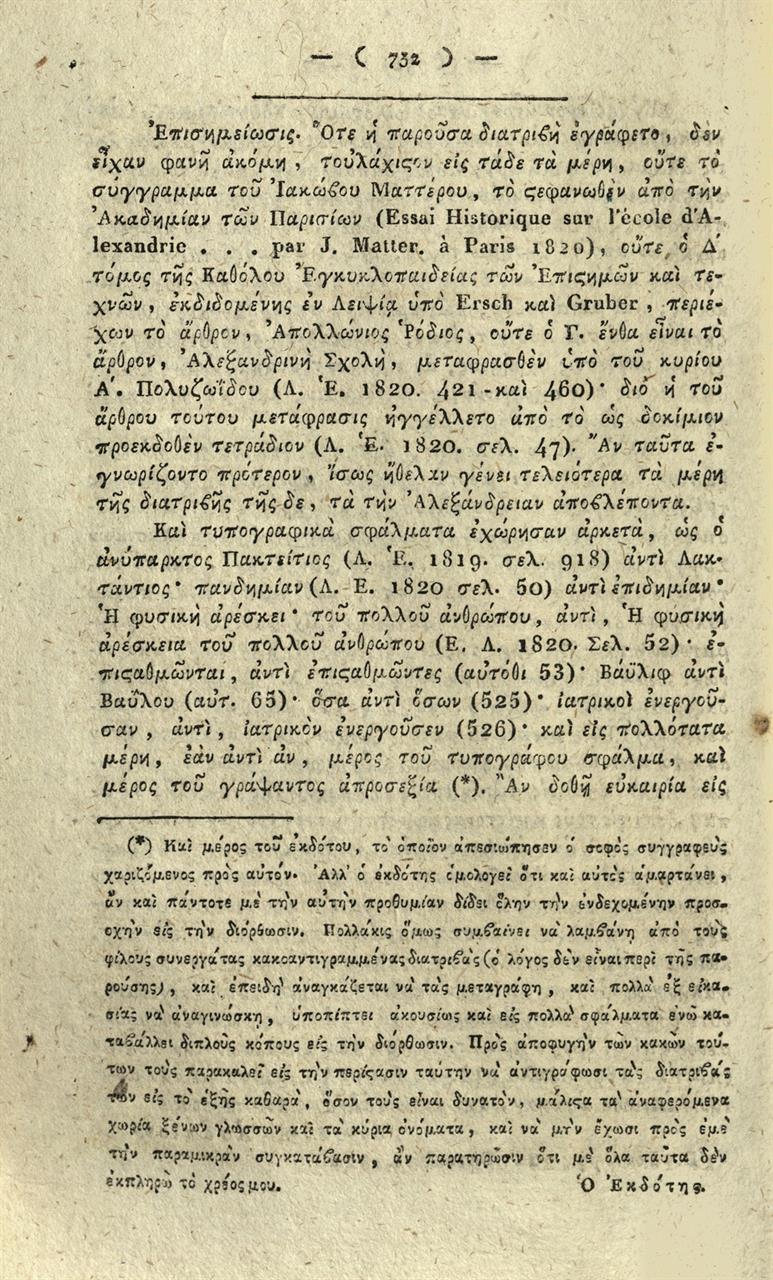 — ( 732 ) —
Ἐπισημείωσις. Ὅτε ἡ παροῦσα διατριβὴ ἐγράφετο, δὲν
εἶχαν φανῆ ἀκόμη, τοὐλάχιςον εἰς τάδε τὰ μέρη, οὔτε τὸ
σύγγραμμα τοῦ Ἰακώβου Ματτέρου, τὸ ςεφανωθὲν ἀπὸ τὴν
Ἀκαδημίαν τῶν Παρισίων (Essai Historique sur l'école d'A-
lexandrie . . . par J. Matter. à Paris 1820), οὔτε ὁ Δ΄
τόμος τῆς Καθόλου Ἐγκυκλοπαιδείας τῶν Ἐπιςημῶν καὶ τε-
χνῶν, ἐκδιδομένης ἐν Λειψίᾳ ὑπὸ Ersch καὶ Gruber, περιέ-
χων τὸ ἄρθρον, Ἀπολλώνιος Ῥόδιος, οὔτε ὁ Γ. ἔνθα εἶναι τὸ
ἄρθρον, Ἀλεξανδρινὴ Σχολὴ, μεταφρασθὲν ὑπὸ τοῦ κυρίου
Α΄. Πολυζωΐδου (Λ. Ἑ. 1820. 421 - καὶ 460)· διὸ ἡ τοῦ
ἄρθρου τούτου μετάφρασις ἠγγέλλετο ἀπὸ τὸ ὡς δοκίμιον
προεκδοθὲν τετράδιον (Λ. Ἑ. 1820. σελ. 47). Ἂν ταῦτα ἐ-
γνωρίζοντο πρότερον, ἴσως ἤθελαν γένει τελειότερα τὰ μέρη
τῆς διατριβῆς τῆς δε, τὰ τὴν Ἀλεξάνδρειαν ἀποβλέποντα.
Καὶ τυπογραφικὰ σφάλματα ἐχώρησαν ἀρκετὰ, ὡς ὁ
ἀνύπαρκτος Πακτείτιος (Λ. Ἑ. 1819. σελ. 918) ἀντὶ Λακ-
τάντιος· πανδημίαν (Λ. Ε. 1820 σελ. 50) ἀντὶ ἐπιδημίαν·
Ἡ φυσικὴ ἀρέσκει· τοῦ πολλοῦ ἀνθρώπου, ἀντὶ, Ἡ φυσικὴ
ἀρέσκεια τοῦ πολλοῦ ἀνθρώπου (Ε. Λ. 1820. Σελ. 52)· ἐ-
πιςαθμῶνται, ἀντὶ ἐπιςαθμῶντες (αὐτόθι 53)· Βάϋλιφ ἀντὶ
Βαΰλου (αὐτ. 65)· ὅσα ἀντὶ ὅσων (525)· ἰατρικοὶ ἐνεργοῦ-
σαν, ἀντὶ, ἰατρικὸν ἐνεργοῦσεν (526)· καὶ εἰς πολλότατα
μέρη, ἐὰν ἀντὶ ἂν, μέρος τοῦ τυπογράφου σφάλμα, καὶ
μέρος τοῦ γράψαντος ἀπροσεξία (*). Ἂν δοθῇ εὐκαιρία εἰς
(*) Καὶ μέρος τοῦ ἐκδότου, τὸ ὁποῖον ἀπεσιώπησεν ὁ σοφὸς συγγραφεὺς
χαριζόμενος πρὸς αὐτόν. Ἀλλ' ὁ ἐκδότης ὁμολογεῖ ὅτι καὶ αὐτὸς ἁμαρτάνει,
ἂν καὶ πάντοτε μὲ τὴν αὐτὴν προθυμίαν δίδει ὅλην τὴν ἐνδεχομένην προσ-
οχὴν εἰς τὴν διόρθωσιν. Πολλάκις ὅμως συμβαίνει νὰ λαμβάνῃ ἀπὸ τοὺς
φίλους συνεργάτας κακοαντιγραμμένας διατριβὰς (ὁ λόγος δὲν εἶναι περὶ τῆς πα-
ρούσης), καὶ ἐπειδὴ ἀναγκάζεται νὰ τὰς μεταγράφῃ, καὶ πολλὰ ἐξ εἰκα-
σίας νὰ ἀναγινώσκῃ, ὑποπίπτει ἀκουσίως καὶ εἰς πολλὰ σφάλματα ἐνῷ κα-
ταβάλλει διπλοὺς κόπους εἰς τὴν διόρθωσιν. Πρὸς ἀποφυγὴν τῶν κακῶν τού-
των τοὺς παρακαλεῖ εἰς τὴν περίςασιν ταύτην νὰ ἀντιγράφωσι τὰς διατριβάς
των εἰς τὸ ἑξῆς καθαρὰ, ὅσον τοὺς εἶναι δυνατὸν, μάλιςα τὰ ἀναφερόμενα
χωρία ξένων γλωσσῶν καὶ τὰ κύρια ὀνόματα, καὶ νὰ μὴν ἔχωσι πρὸς ἐμὲ
τὴν παραμικρὰν συγκατάβασιν, ἂν παρατηρῶσιν ὅτι μὲ ὅλα ταῦτα δὲν
ἐκπληρῶ τὸ χρέος μου. Ὁ Ἐκδότης.